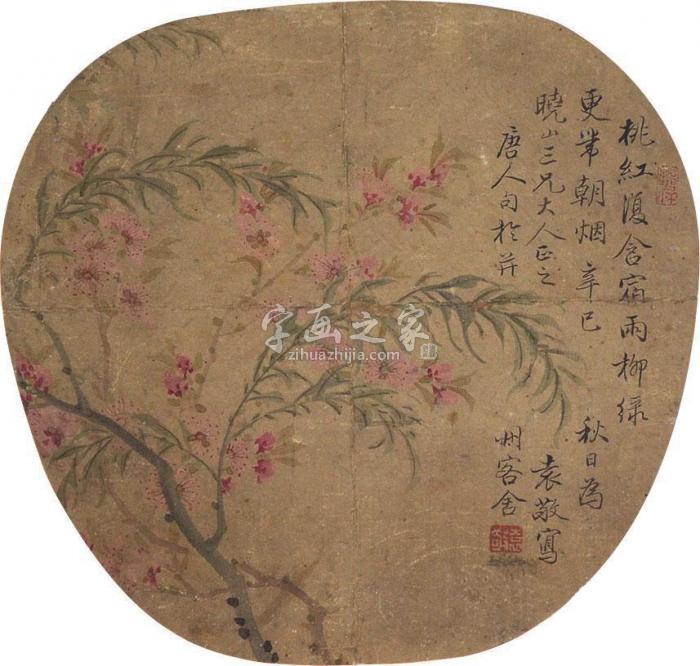 桃紅復含宿雨柳綠
更帶朝烟辛巳秋日為
曉山三兄大人正之袁敬寫
唐人句於并州客舍
字画之家
zihuazhijia.com